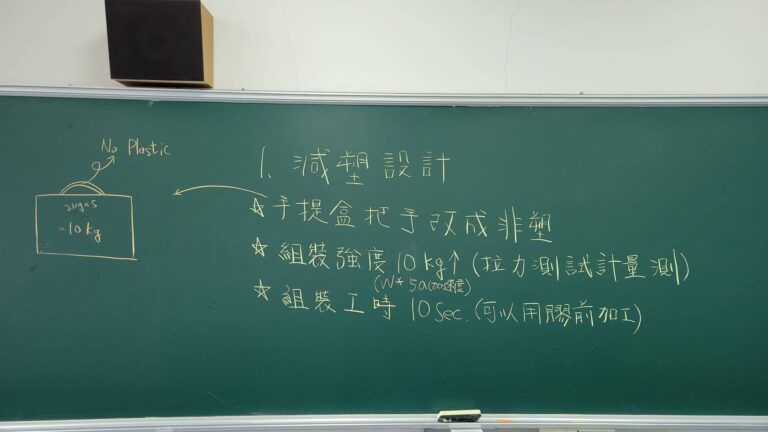 No Plastic
2kg×5
=10kg
1. 減塑設計
☆手提盒把手改成非塑
☆組裝強度10kg↑(拉力測試計量測)
(W*5a(加速度)
☆組裝工時10Sec.(可以用膠前加工)